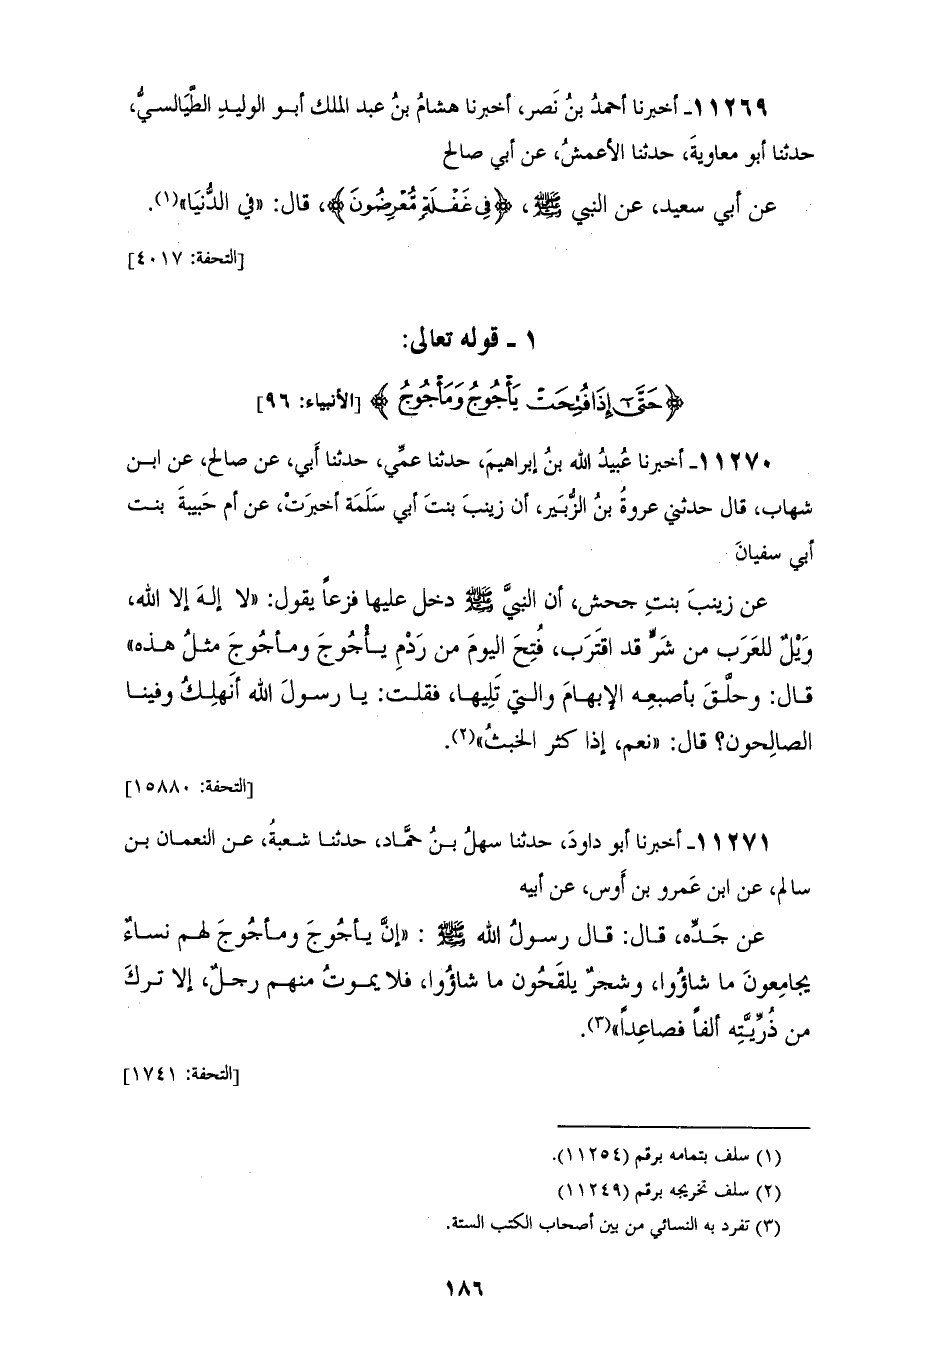 ١١٢٦٩ـ أخبرنا أحمدُ بنُ نَصر، أخبرنا هشامُ بنُ عبد الملك أبـو الوليدِ الطَّيَالسـيُّ،
حدثنا أبو معاويةَ، حدثنا الأعمشُ، عن أبي صالح
عن أبي سعيد، عن النبي ﷺ ، ﴿فِى غَفْلَةٍ مُّعْرِضُونَ﴾، قال: «في الدُّنيَا»(١).
[التحفة: ٤٠١٧]
١ ـ قوله تعالى:
﴿حَتَّىٰٓ إِذَا فُتِحَتْ يَأْجُوجُ وَمَأْجُوجُ﴾ [الأنبياء: ٩٦]
١١٢٧٠ـ أخبرنا عُبيدُ الله بنُ إبراهيمَ، حدثنا عمِّي، حدثنا أَبي، عن صالح، عن ابـن
شهاب، قال حدثني عروةُ بنُ الزُّبَير، أن زينبَ بنتَ أبي سَلَمَة أخبرَتْ، عن أم حَبيبةَ بنـت
أبي سفيانَ
عن زينبَ بنتِ جحش، أن النبيَّ ﷺ دخل عليها فزعاً يقول: «لا إلهَ إلا الله،
وَيْلٌ للعَرَب من شَرٍّ قد اقتَرَب، فُتِحَ اليومَ من رَدْمِ يـأْجُوجَ ومـأجُوجَ مثـلُ هـذه»
قـال: وحلَّـقَ بأصبعِـه الإبهـامَ والـتي تَلِيهـا، فقلـت: يـا رسـولَ الله أَنهلِـكُ وفينـا
الصالِحون؟ قال: «نعم، إذا كثر الخبثُ»(٢).
[التحفة: ١٥٨٨٠]
١١٢٧١ـ أخبرنا أبو داودَ، حدثنا سهلُ بـنُ حمَّـاد، حدثنـا شـعبةُ، عـن النعمـان بـن
سالم، عن ابن عَمرو بن أَوس، عن أبيه
عن جَـدِّه، قـال: قـال رسـولُ الله ﷺ : «إنَّ يـأجُوجَ ومـأجُوجَ لهـم نسـاءٌ
يجامِعونَ ما شاؤُوا، وشجرٌ يلقَحُون ما شاؤُوا، فلا يمـوتُ منهـم رجـلٌ، إلا تـركَ
من ذُرِّيَّتِه ألفاً فصاعِداً»(٣).
[التحفة: ١٧٤١]
(١) سلف بتمامه برقم (١١٢٥٤).
(٢) سلف تخريجه برقم (١١٢٤٩)
(٣) تفرد به النسائي من بين أصحاب الكتب الستة.
١٨٦